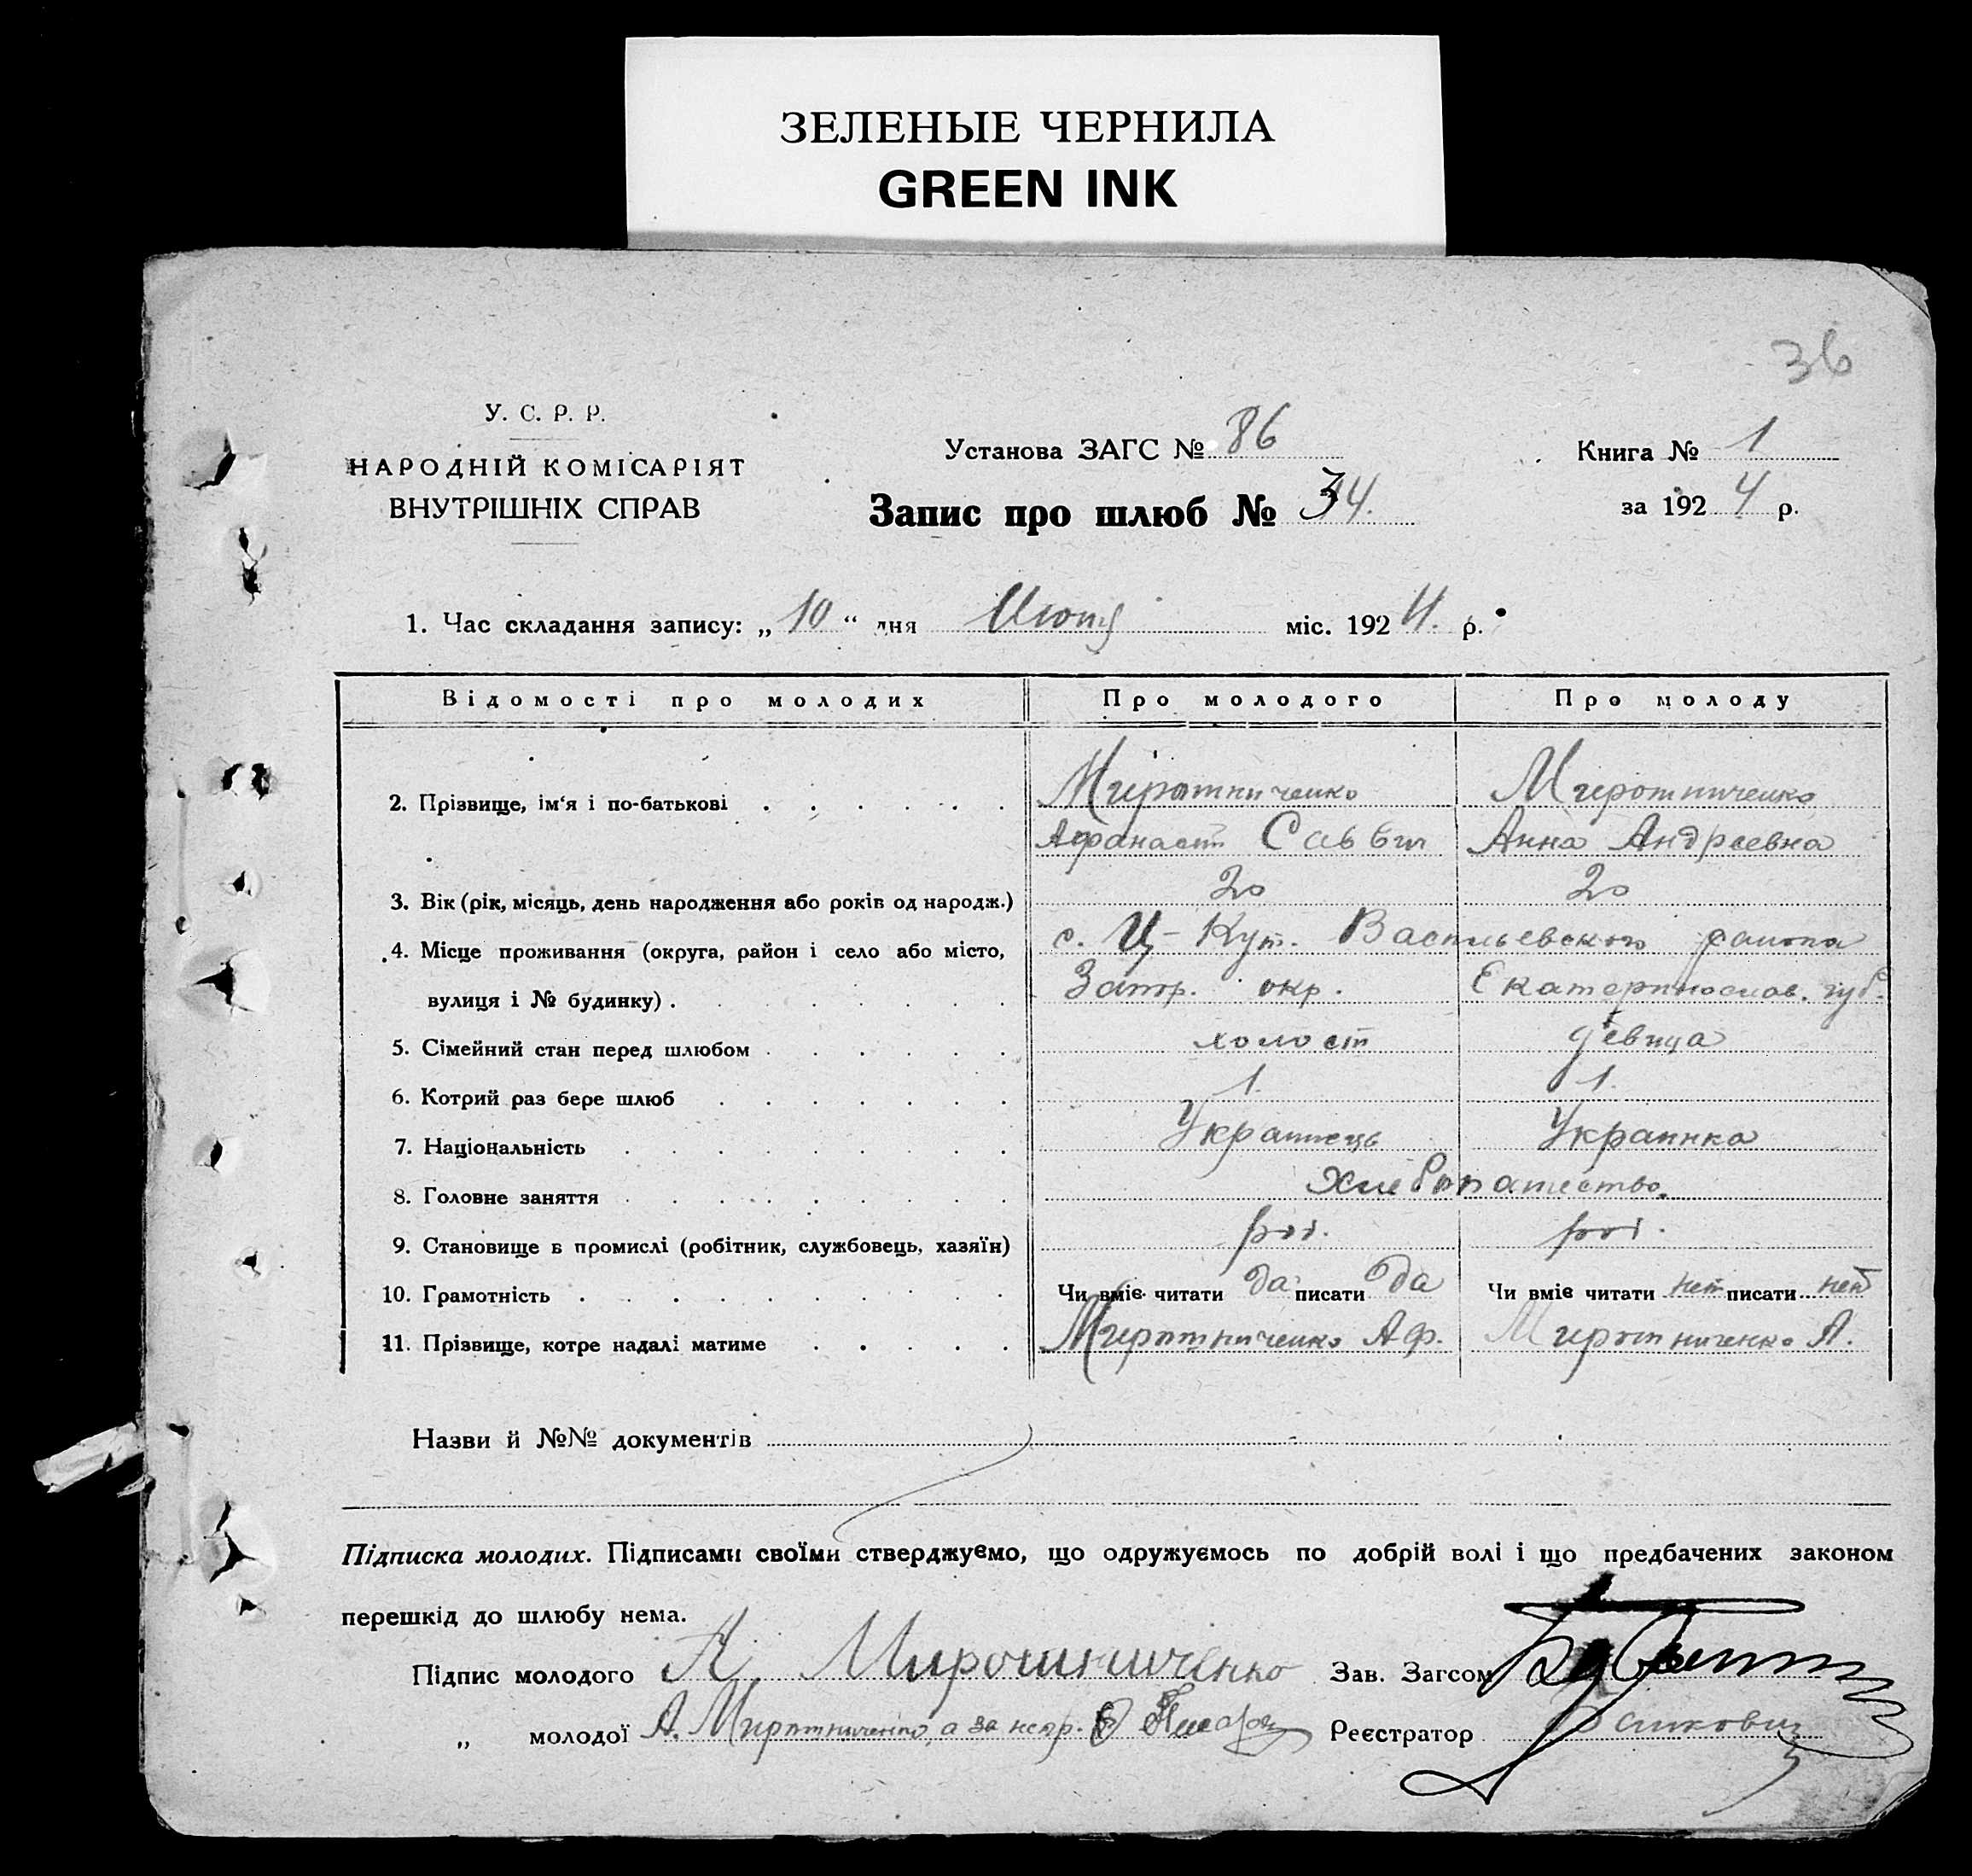 ЗЕЛЕНЫЕ ЧЕРНИЛА
GREEN INK
36
У. С. Р. Р.
НАРОДНІЙ КОМІСАРІЯТ
ВНУТРІШНІХ СПРАВ
Установа ЗАГС № 86
Запис про шлюб № 34.
Книга № 1
за 1924 р.
1. Час складання запису: „ 10 “ дня Июня міс. 1924. р.
Відомості про молодих Про молодого Про молоду
2. Прізвище, ім‘я і по-батькові Мирошниченко Мирошниченко
Афанасий Саввич Анна Андреевна
3. Вік (рік, місяць, день народження або років од народж.) 20 20
4. Місце проживання (округа, район і село або місто, с. Ц-Кут. Васильевского района
вулиця і № будинку) . Запор. окр. Екатеринослав. губ.
5. Сімейний стан перед шлюбом холост девица
6. Котрий раз бере шлюб 1. 1.
7. Національність Украинець Украинка
8. Головне заняття Хлебопашество.
9. Становище в промислі (робітник, службовець, хазяїн)
10. Грамотність Чи вміє читати да писати да Чи вміє читати нет писати нет
11. Прізвище, котре надалі матиме Мирошниченко Аф. Мирошниченко А.
Назви й №№ документів
Підписка молодих. Підписами своїми стверджуємо, що одружуємось по добрій волі і що предбачених законом
перешкід до шлюбу нема.
Підпис молодого А. Мирошниченко Зав. Загсом
„ молодої А. Мирошниченко, а за негр. Реєстратор